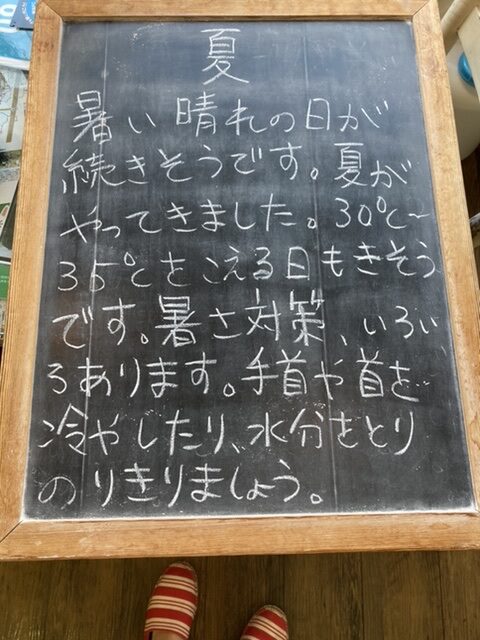 夏
暑い晴れの日が
続きそうです。夏が
やってきました。30℃~
35℃をこえる日もきそう
です。暑さ対策、いろい
ろあります。手首や首を
冷やしたり、水分をとり
のりきりましょう。